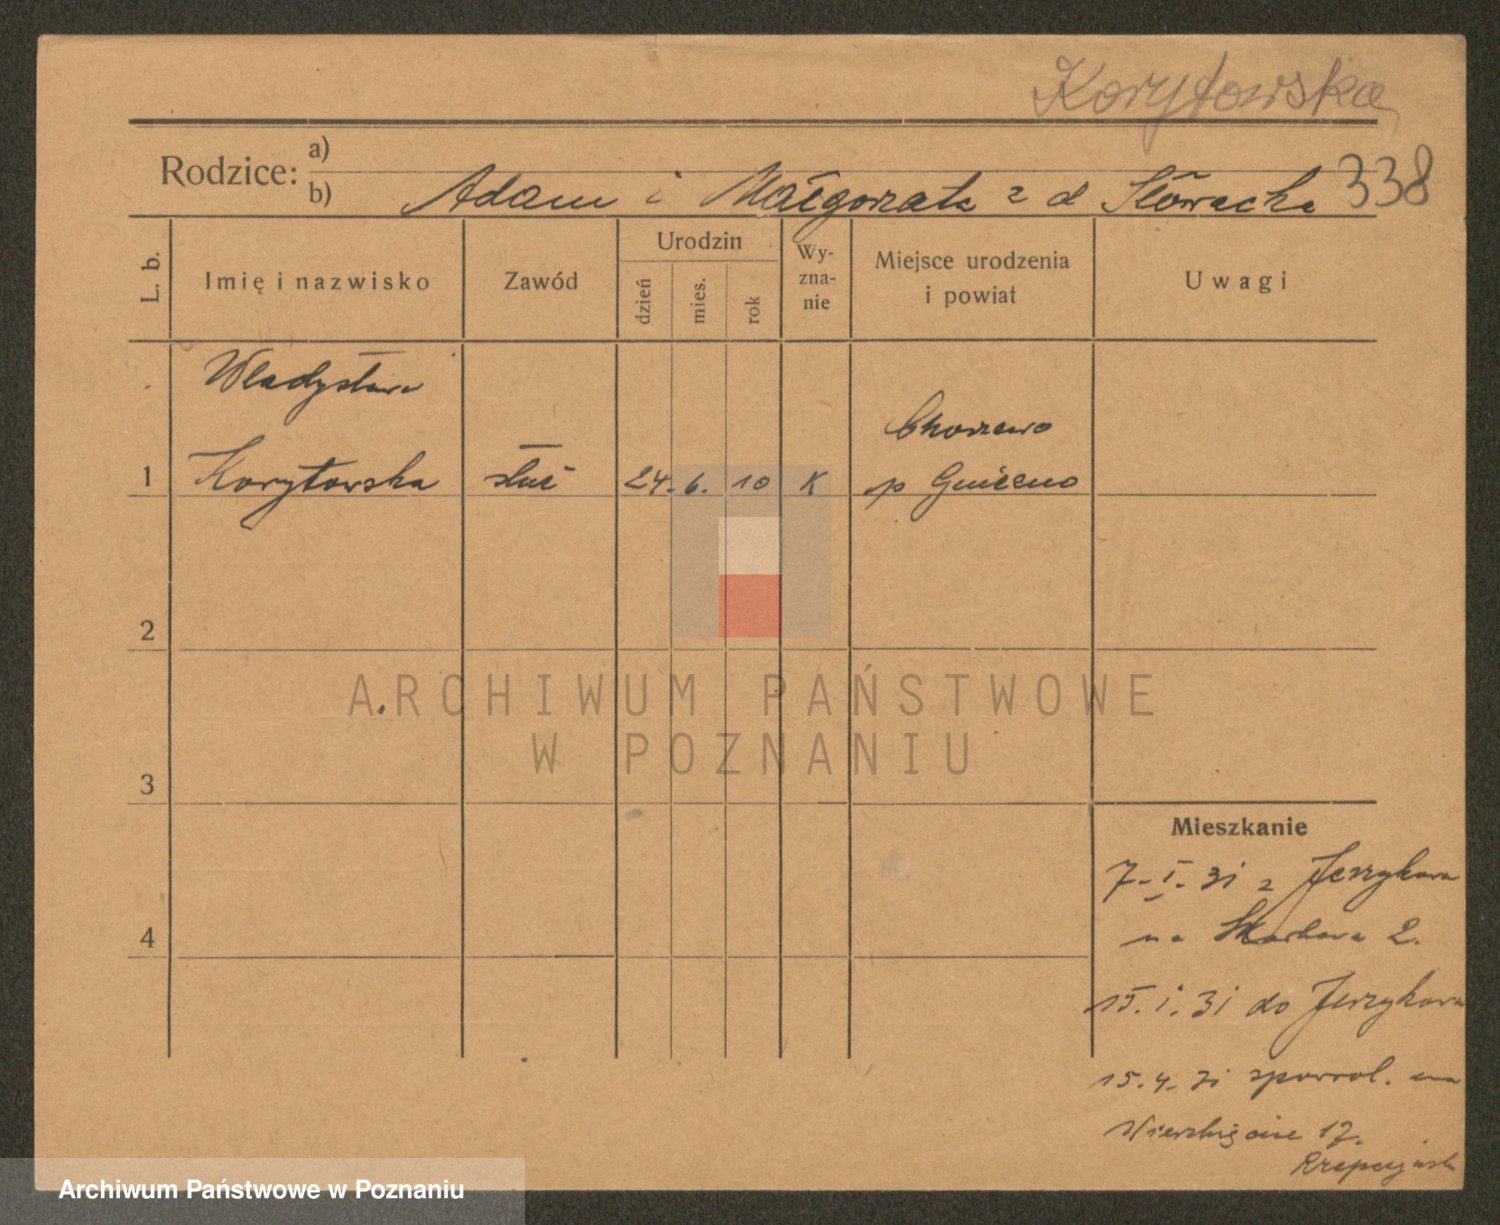 Korytowska
Rodzice: a)
b) Adam i Małgorzata z d Słowacka 338
L. b.
Imię i nazwisko
Zawód
Urodzin
dzień
mies.
rok
Wy-
zna-
nie
Miejsce urodzenia
i powiat
Uwagi
Władysława
1 Korytowska służ 24. 6. 10 K
p Gniezno
2
3
4
ARCHIWUM PAŃSTWOWE
W POZNANIU
Mieszkanie
7-I-31 z Jerzykowa
na 2.
15.I.31 do Jerzykowa
15.4.31 na
17.
Archiwum Państwowe w Poznaniu